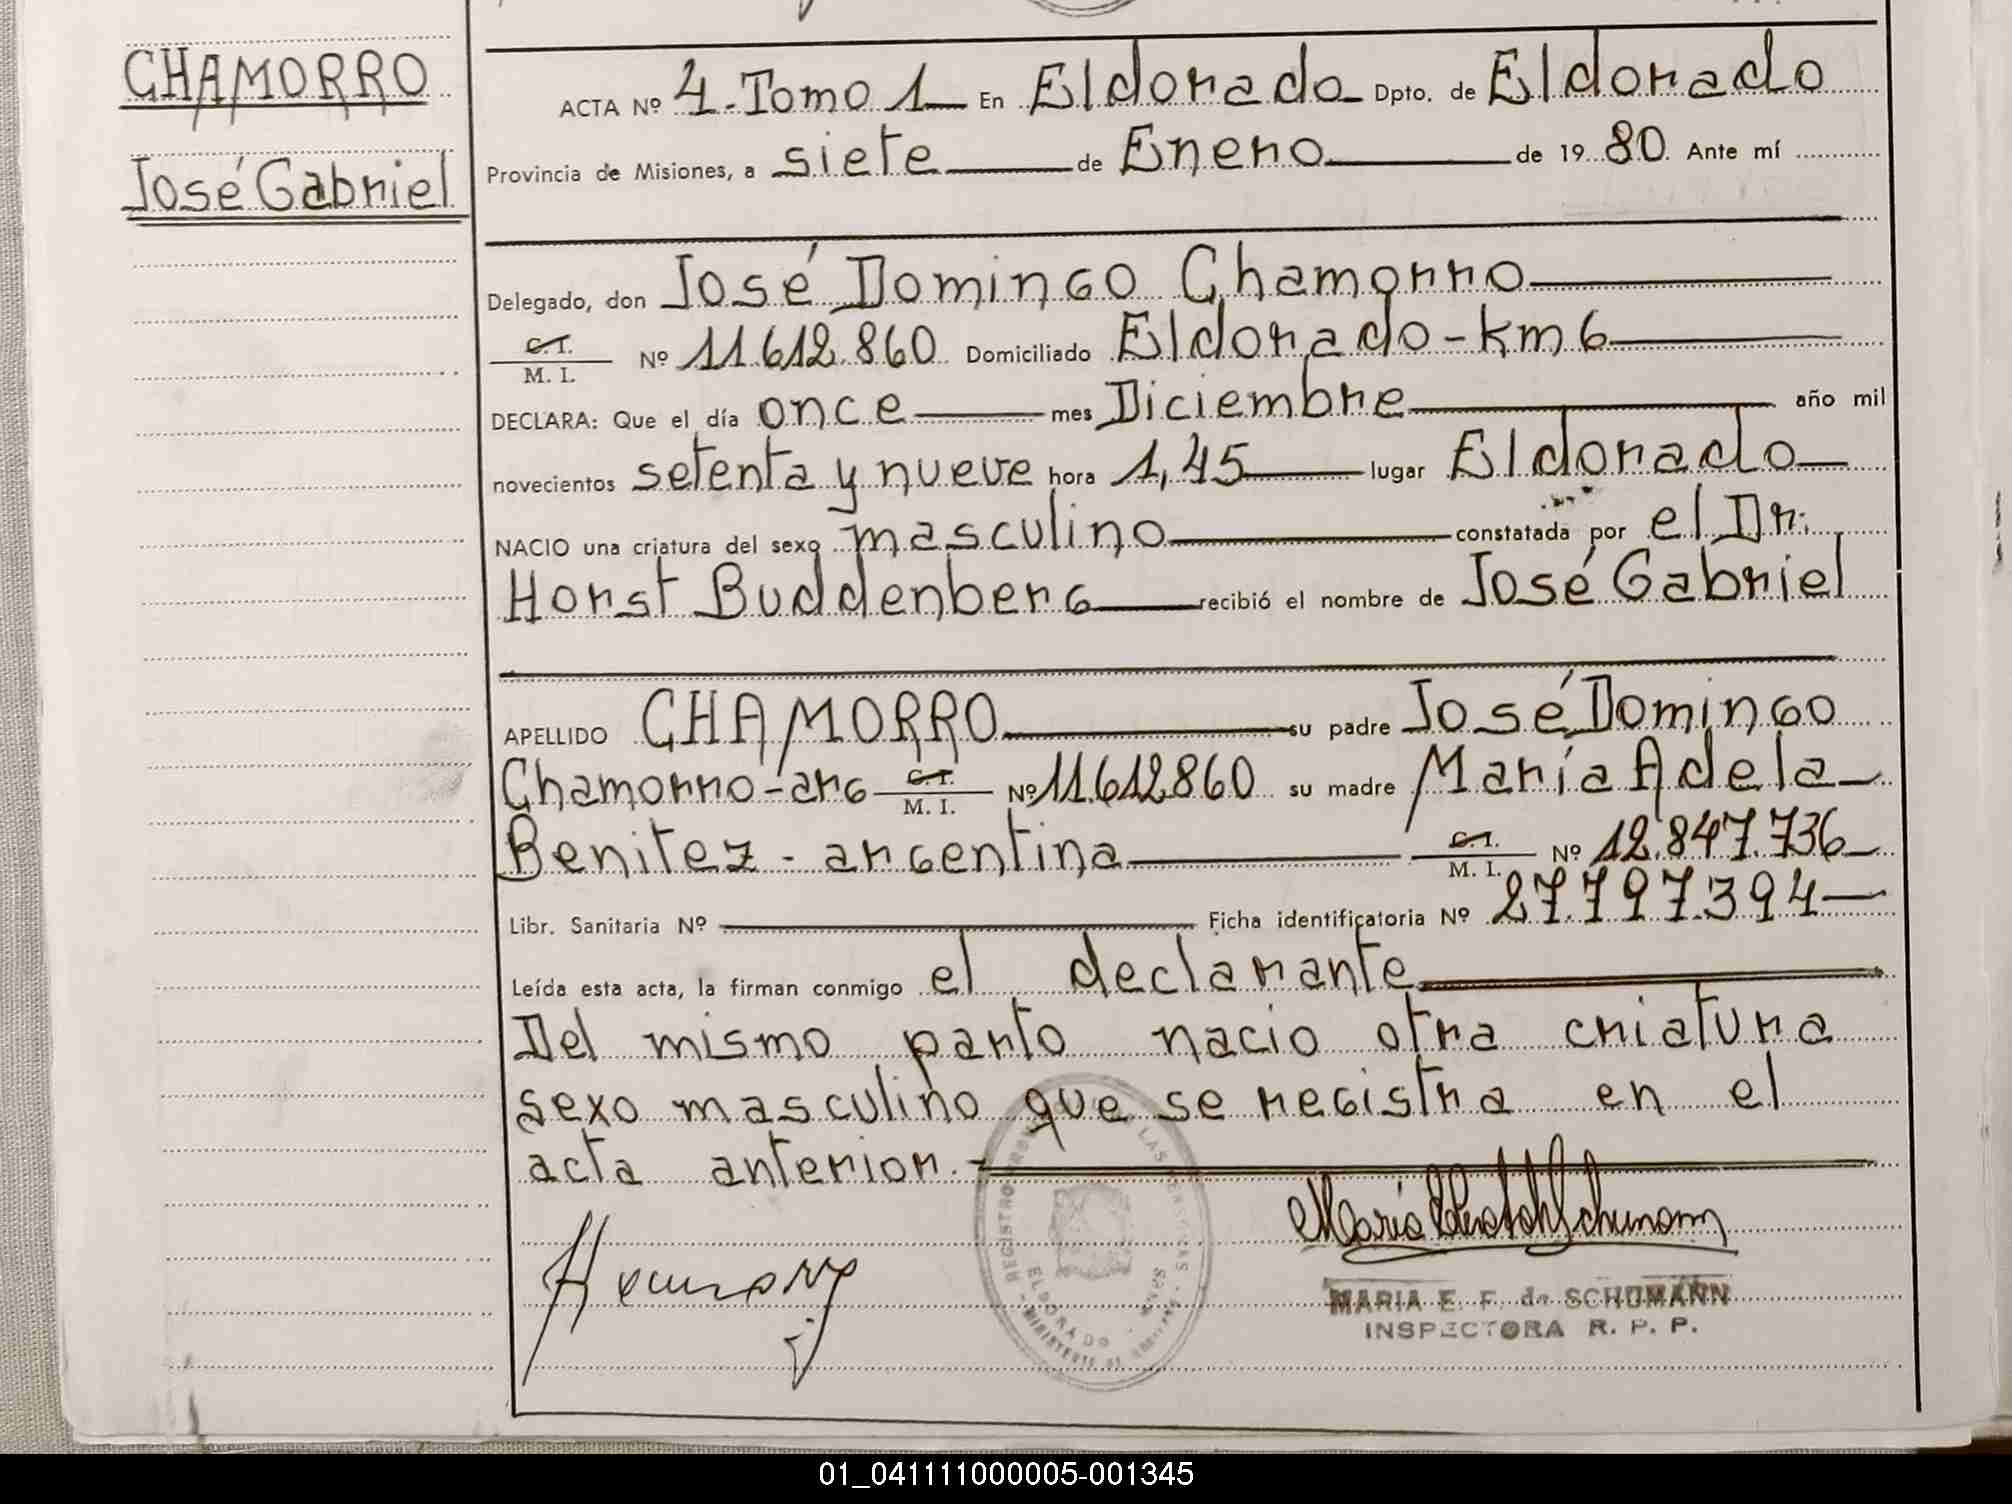 CHAMORRO
José Gabriel
ACTA Nº 4.Tomo 1 En Eldorado Dpto. de Eldorado
Provincia de Misiones, a siete de Enero de 19 80. Ante mí
Delegado, don José Domingo Chamorro
C.I. / M. I. Nº 11.612.860 Domiciliado Eldorado-km 6
DECLARA: Que el día once mes Diciembre año mil
novecientos setenta y nueve hora 1,45 lugar Eldorado
NACIO una criatura del sexo masculino constatada por el Dr.
Horst Buddenberg recibió el nombre de José Gabriel
APELLIDO CHAMORRO su padre José Domingo
Chamorro-arg C.I. / M. I. Nº 11.612.860 su madre María Adela
Benitez - argentina C.I. / M. I. Nº 12.847.736
Libr. Sanitaria Nº Ficha identificatoria Nº 27.797.394
Leída esta acta, la firman conmigo el declarante
Del mismo parto nacio otra criatura
sexo masculino que se registra en el
acta anterior.-
REGISTRO LAS PERSONAS
ELDORADO
MARIA E. F. de SCHUMANN
INSPECTORA R. P. P.
01_041111000005-001345